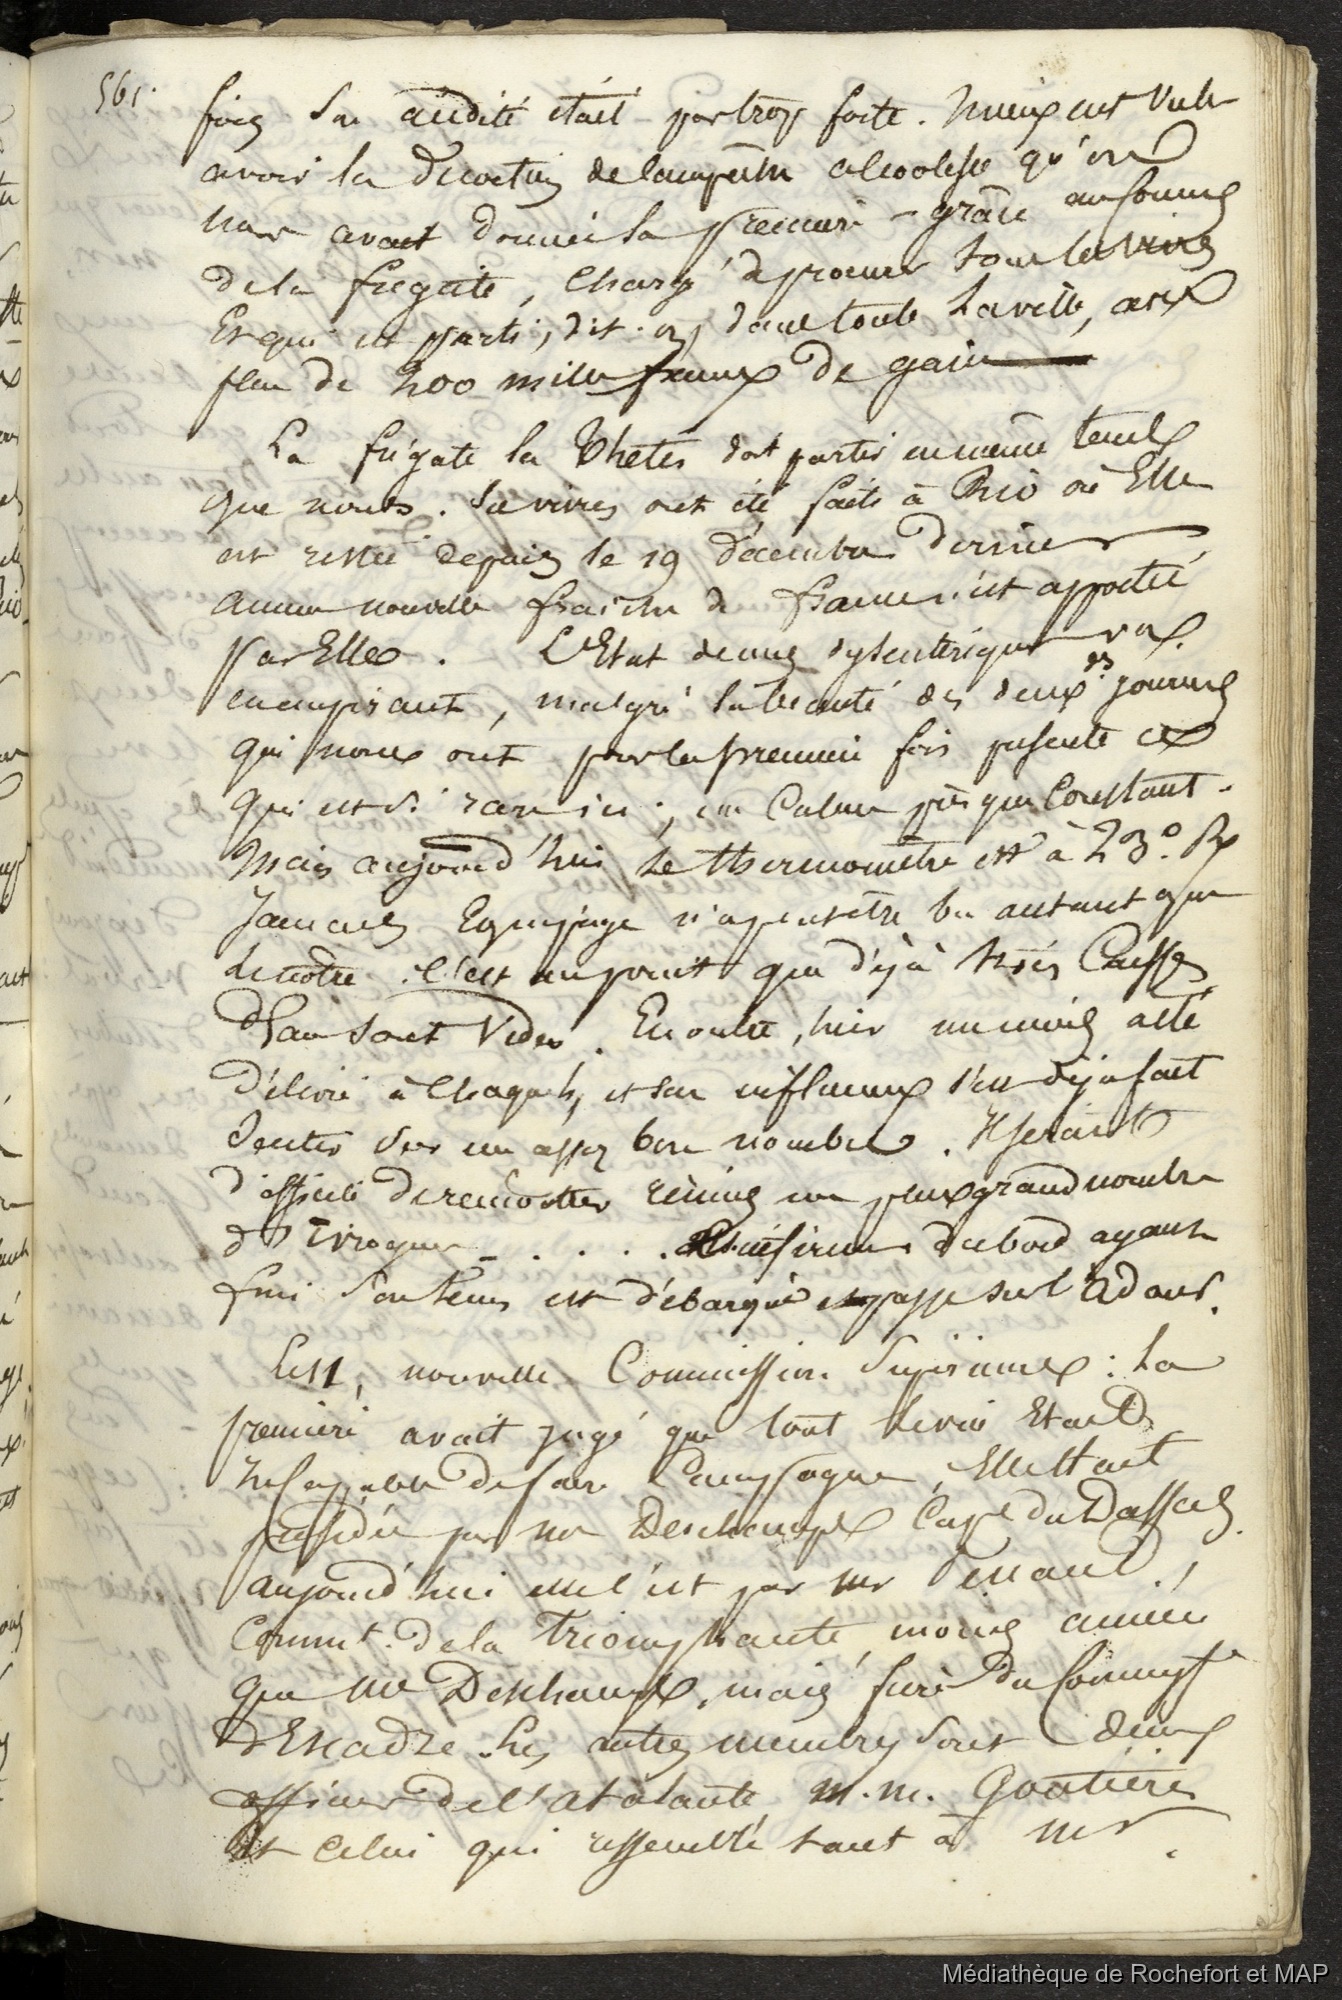 561.
fois son acidité était par trop forte. Mieux eut valu
avoir la décoction de campêche alcoolisé qu'on
nous avait donnée la première - grâce au Commis
de la frégate, chargé de procurer tous les vivres
Et qui est parti, dit-on, dans toute la ville, avec
plus de 200 mille francs de gain
La frégate la Thétis doit partir en même temps
que nous. Ses vivres ont été faits à Rio où Elle
est restée depuis le 19 décembre dernier
aucune nouvelle fraîche de France n'est apportée
par Elle. L'Etat de nos dysentériques va
en empirant, malgré la beauté des deux dres journées
qui nous ont pour la première fois présenté ce
qui est si rare ici ; un Calme presque Constant.
Mais aujourd'hui le thermomètre est à 23°. R
Jamais Equipage n'a peut-être bu autant que
le notre. C'est au point que déjà trois Caisses
d'Eau sont Vides. En outre, hier un mois a été
délivré à chaque h, et son influence s'est déjà fait
sentir sur un assez bon nombre. Il serait
difficile de rencontrer réunis un plus grand nombre
d'Ivrognes - . . . . . infirmier du bord ayant
fini son temps est débarqué et passe sur l'adour.
Le 11, nouvelle Commission Supérieure : la
première avait jugé que tout le vin Etait
incapable de faire Campagne, Elle était
présidée par mr Deschamps Cape du Dassas
aujourd'hui elle l'est par Mr Penaud,
Commt. de la Triomphante, moins ancien
que Mr Deschamps, mais du
d'Escadre. Les autres membres sont deux
officiers de l'atalante M.M. Goutière
et celui qui ressemble tant à Mr
Médiathèque de Rochefort et MAP